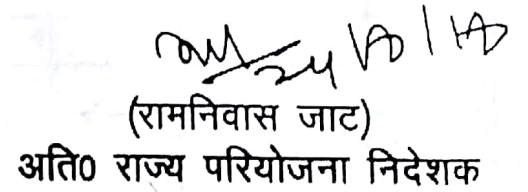 (रामनिवास जाट)
अति0 राज्य परियोजना निदेशक